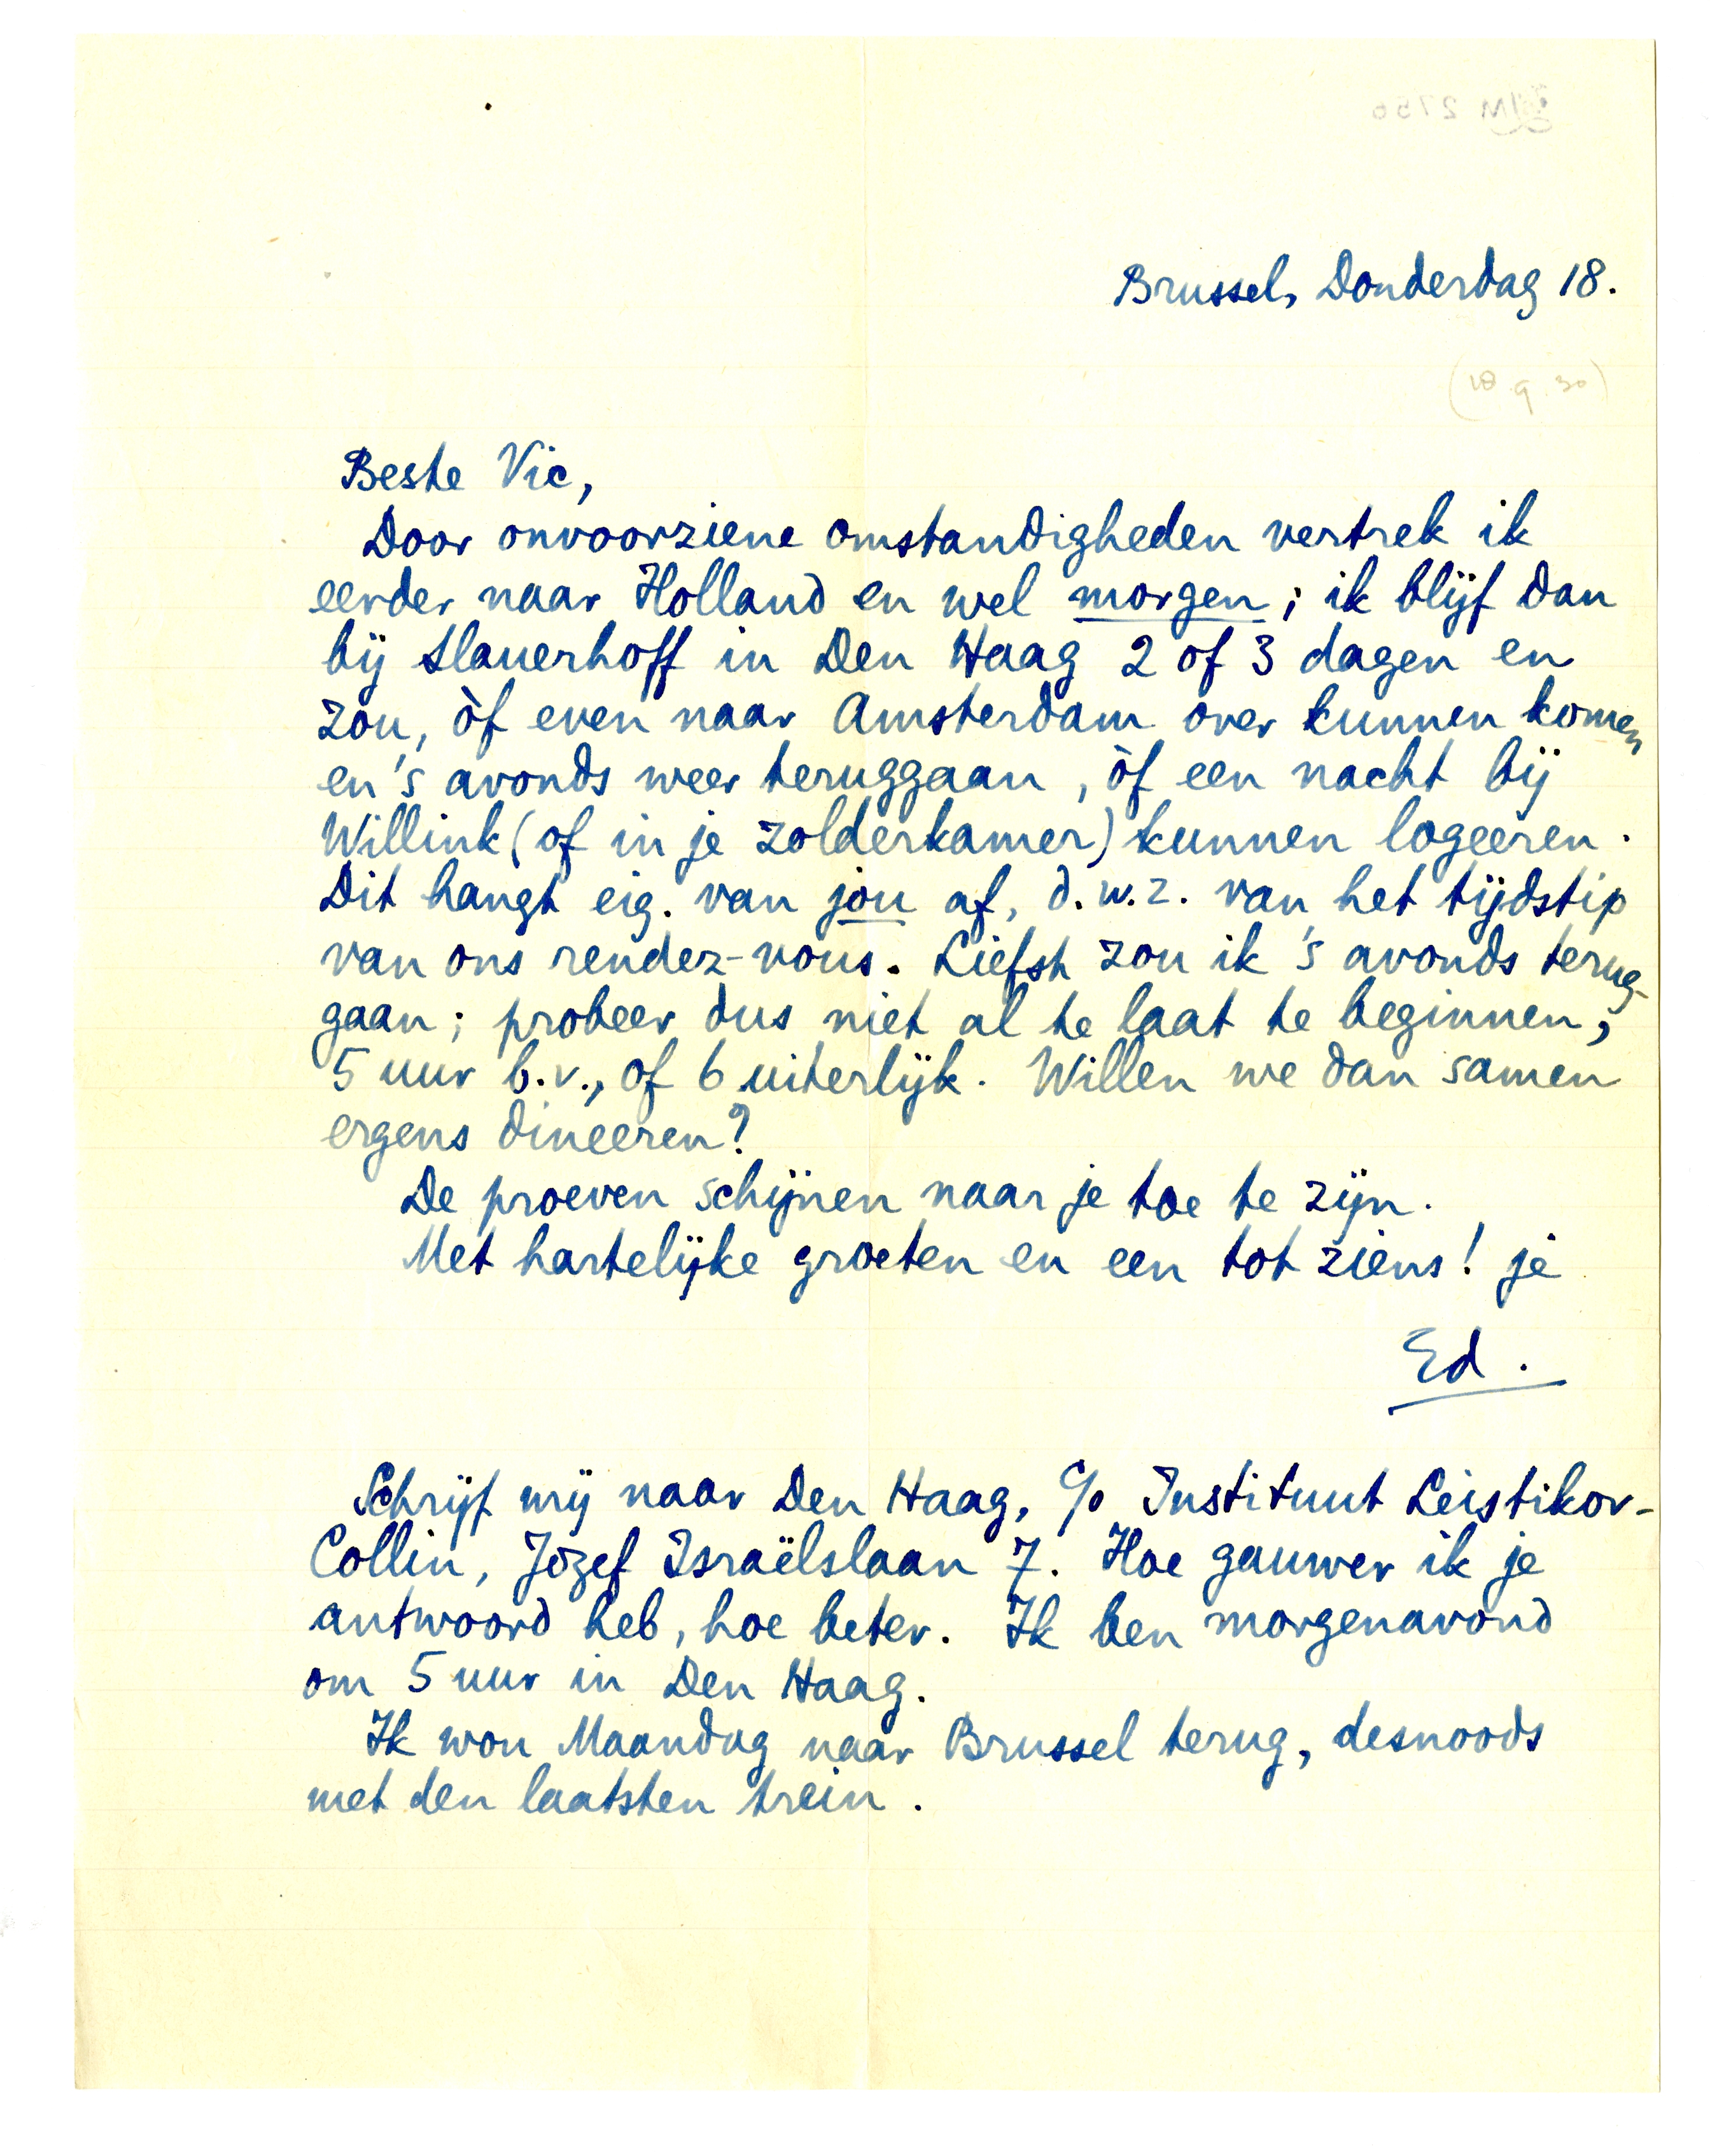 Brussel, Donderdag 18.
(18.9.30)
Beste Vic,
Door onvoorziene omstandigheden vertrek ik
eerder naar Holland en wel morgen; ik blijf dan
bij Slauerhoff in Den Haag 2 of 3 dagen en
zou, òf even naar Amsterdam over kunnen komen
en 's avonds weer teruggaan, òf een nacht bij
Willink (of in je zolderkamer) kunnen logeeren.
Dit hangt eig. van jou af, d.w.z. van het tijdstip
van ons rendez-vous. Liefst zou ik 's avonds terug-
gaan; probeer dus niet al te laat te beginnen;
5 uur b.v., of 6 uiterlijk. Willen we dan samen
ergens dineeren?
De proeven schijnen naar je toe te zijn.
Met hartelijke groeten en een tot ziens! je
Ed.
Schrijf mij naar Den Haag, c/o Instituut Leistikov-
Collin, Jozef Israëlslaan 7. Hoe gauwer ik je
antwoord heb, hoe beter. Ik ben morgenavond
om 5 uur in Den Haag.
Ik wou Maandag naar Brussel terug, desnoods
met den laatsten trein.